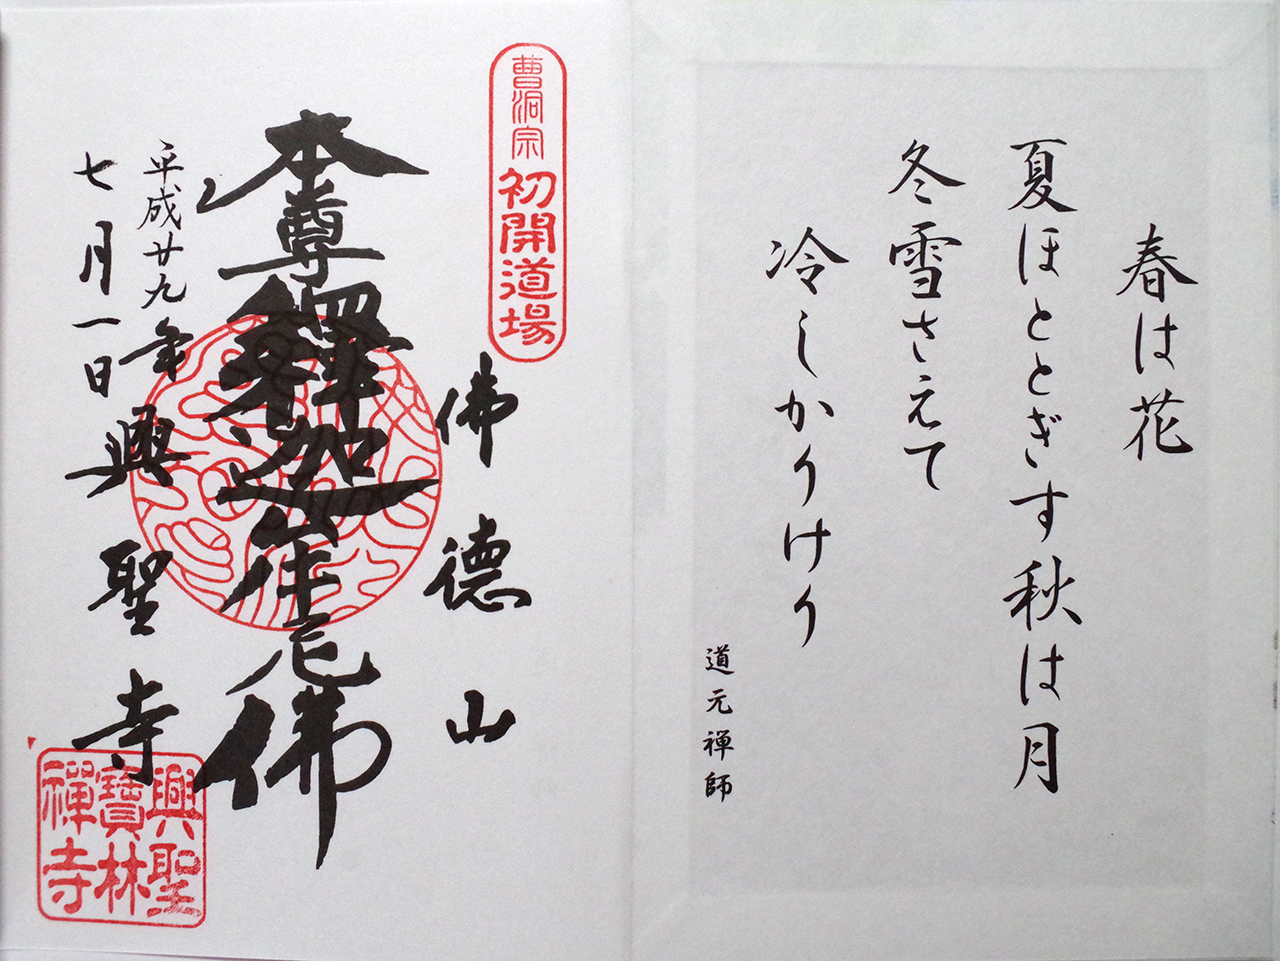 春は花
夏ほととぎす秋は月
冬雪さえて
冷しかりけり
道元禅師
曹洞宗
初開道場
佛德山
本尊釋迦牟尼佛
平成廿九年
七月一日
興聖寺
興聖
寶林
禪寺